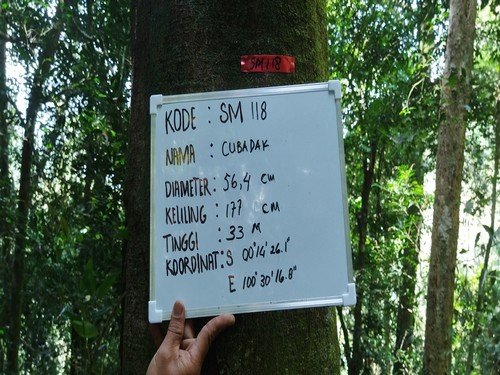 SM 118
KODE : SM 118
NAMA : CUBADAK
DIAMETER : 56,4 cm
KELILING : 177 CM
TINGGI : 33 M
KOORDINAT : S 00°14'26.1"
E 100°30'16.8"